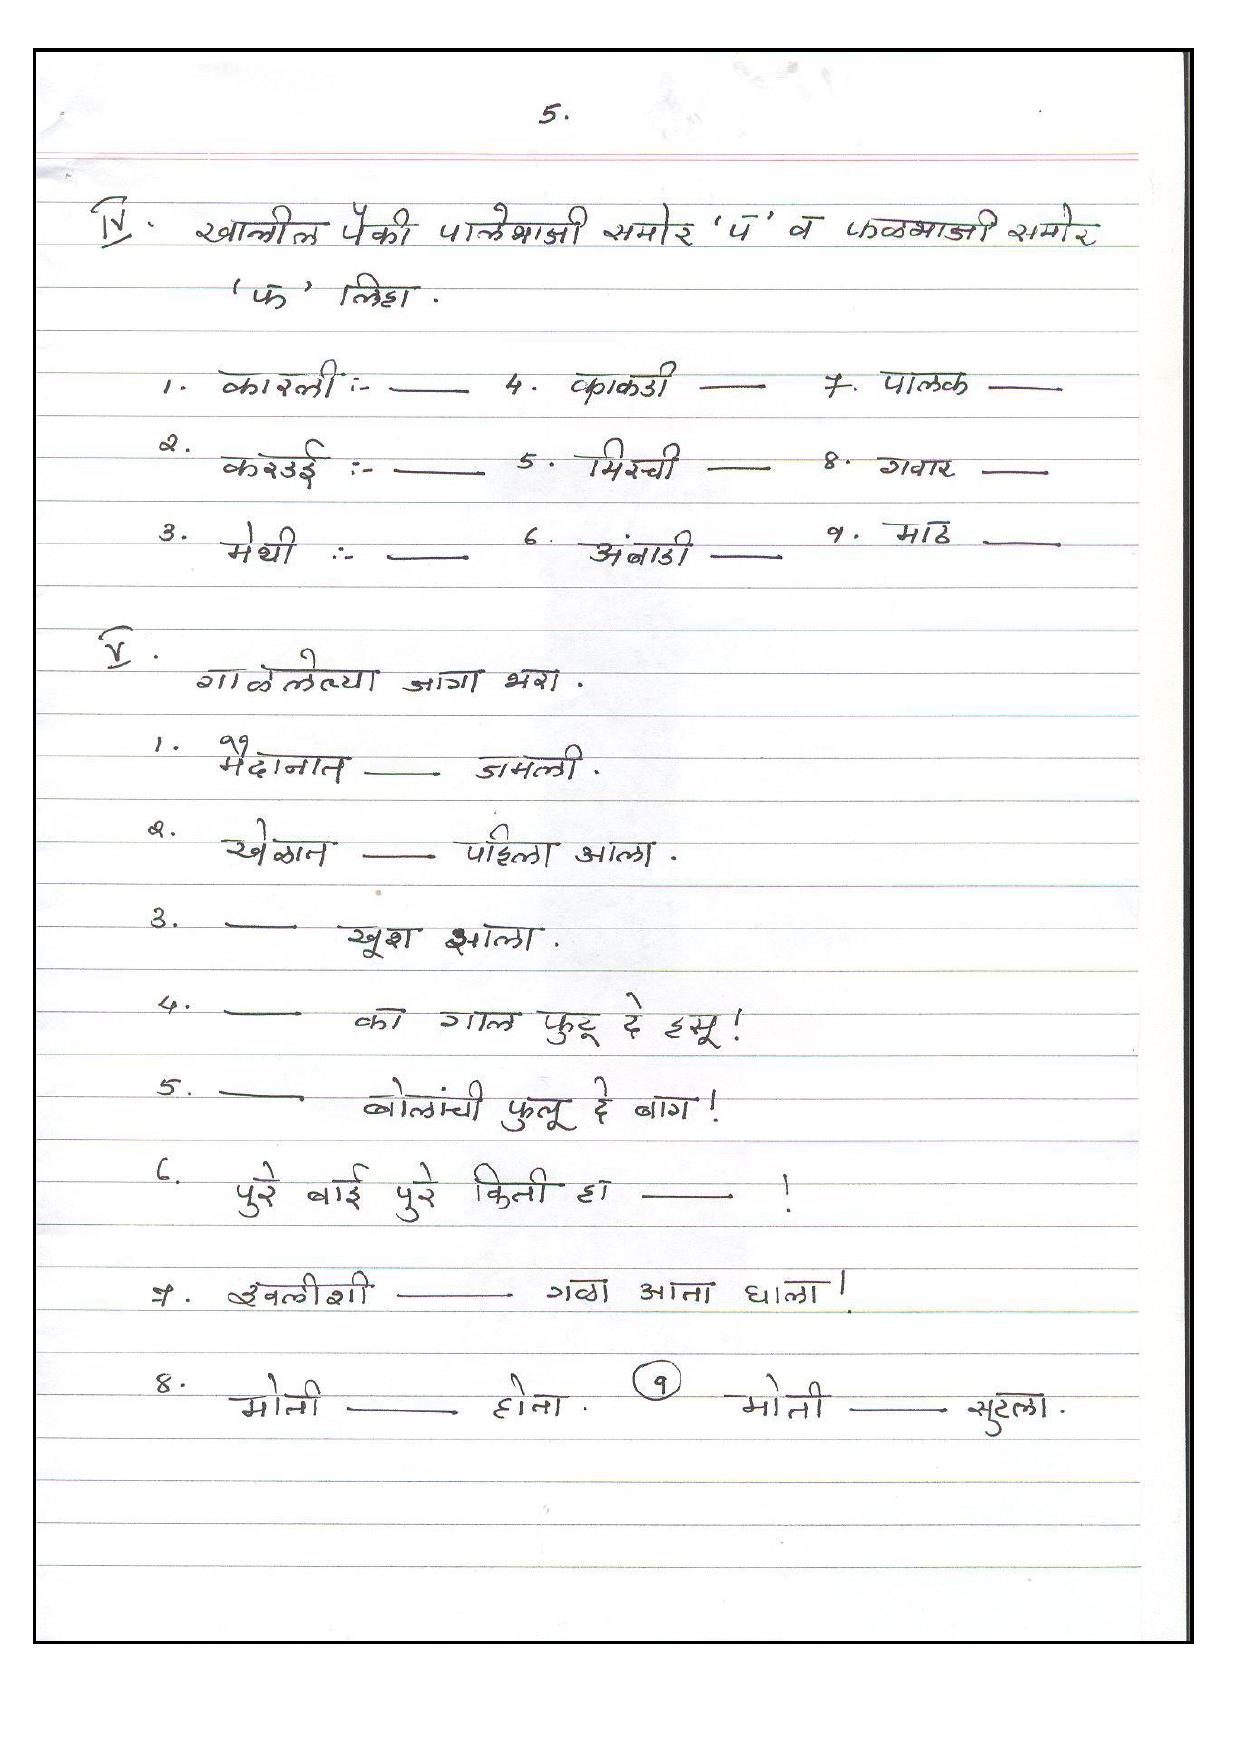 5.
IV. खालील पैकी पालेभाजी समोर 'प' व फळभाजी समोर
'फ' लिहा.
1. कारली :- —— 4. काकडी —— 7. पालक ——
2. करडई :- —— 5. मिरची —— 8. गवार ——
3. मेथी :- —— 6. अंबाडी —— ९. माठ ——
V.
गाळलेल्या जागा भरा.
1. मैदानात —— जमली.
2. खेळात —— पहिला आला.
3. —— खूश झाला.
4. —— का गाल फुटू दे हसू!
5. —— बोलांची फुलू दे बाग!
6. पुरे बाई पुरे किती हा —— !
7. इवलीशी —— गळा आता घाला!
8. मोती —— होता. ९ मोती —— सुटला.